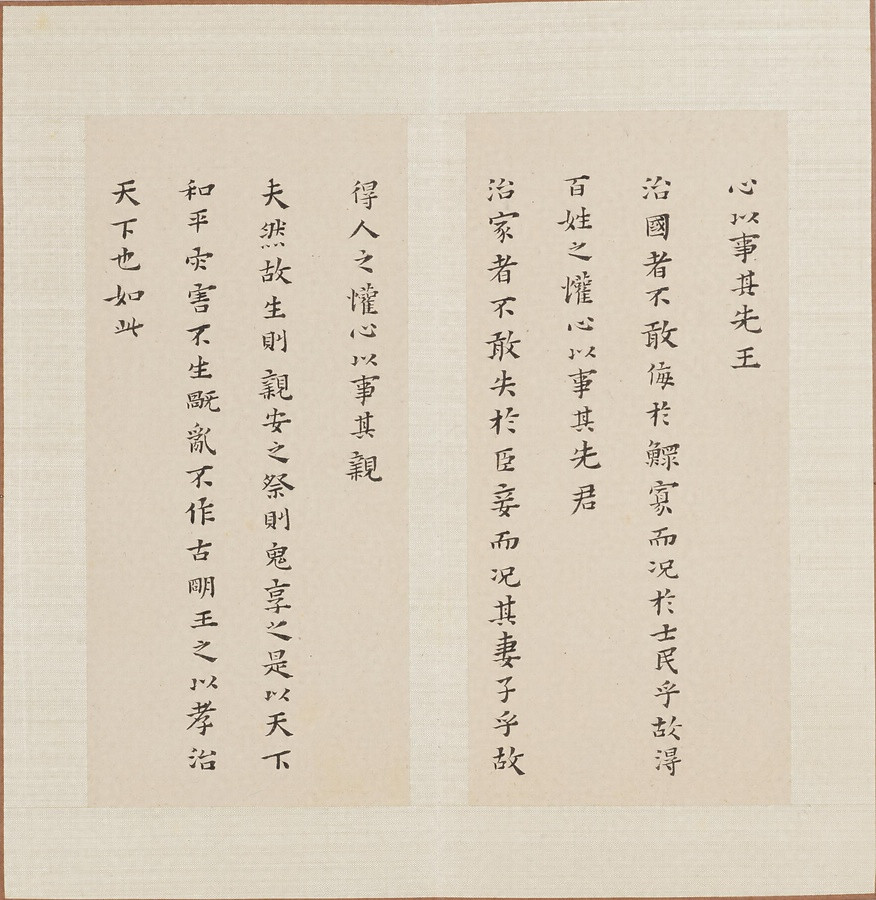 心以事其先王
治國者不敢侮於鰥寡而况於士民乎故得
百姓之懽心以事其先君
治家者不敢失於臣妾而况其妻子乎故
得人之懽心以事其親
夫然故生則親安之祭則鬼享之是以天下
和平灾害不生既亂不作古明王之以孝治
天下也如此